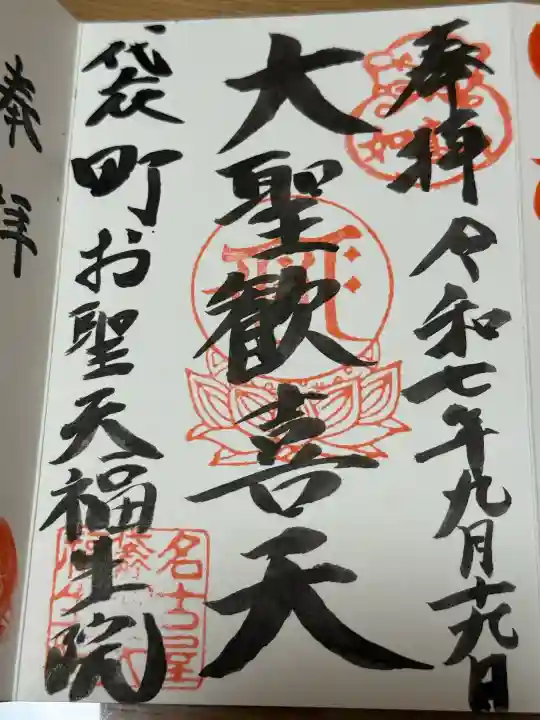 奉拝 令和七年九月十九日
大聖歓喜天
袋町お聖天福生院
名古屋
奉拝